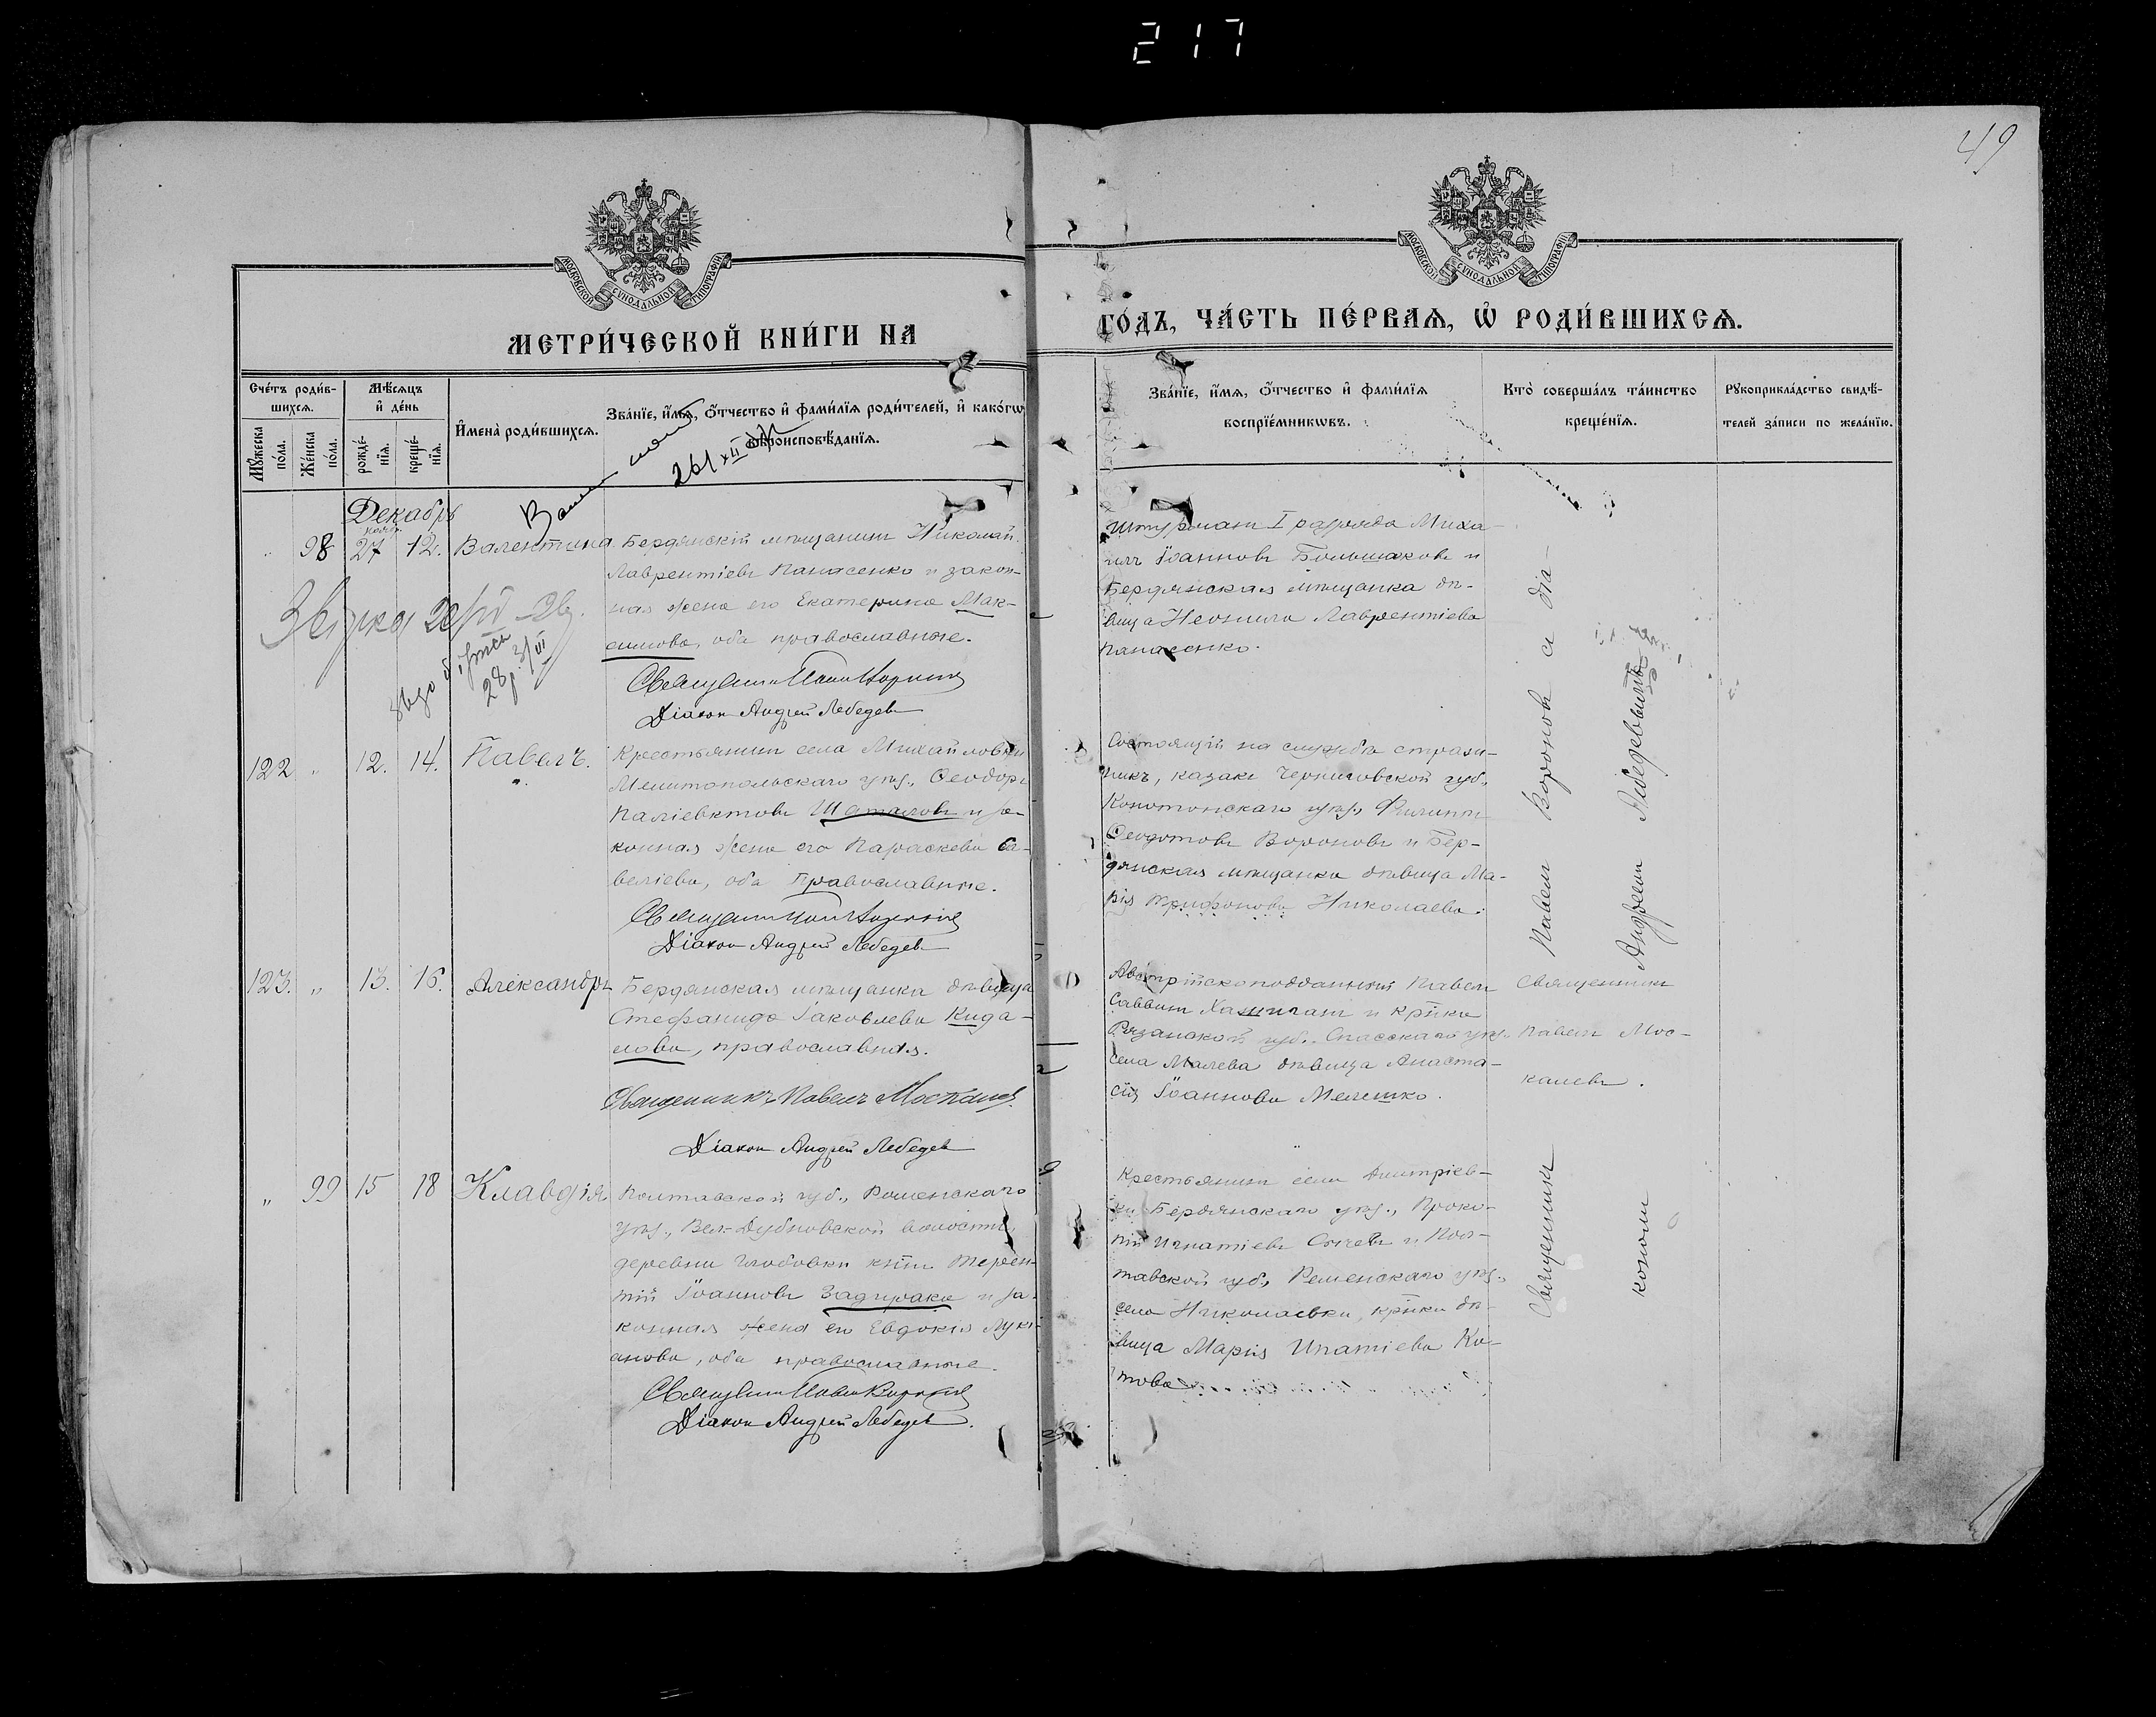 217
49
МОСКОВСКОЙ СѴНОДАЛЬНОЙ ТИПОГРАФІИ
МОСКОВСКОЙ СѴНОДАЛЬНОЙ ТИПОГРАФІИ
МЕТРИ́ЧЕСКОЙ КНИ́ГИ НА
ГО́ДЪ, ЧА́СТЬ ПЕ́РВАЯ, Ѡ҆ РОДИ́ВШИХСЯ.
Сче́тъ роди́в-
шихся.
Мꙋ́жеска
по́ла.
Же́нска
по́ла.
Мѣ́сяцъ
и҆ де́нь
рожде́-
нїя.
креще́-
нїя.
И҆мена̀ роди́вшихся.
Зва́нїе, и҆́мя, ѻ҆́тчество и҆ фами́лїя роди́телей, и҆ како́гѡ
вѣроисповѣ́данїя.
Зва́нїе, и҆́мя, ѻ҆́тчество и҆ фами́лїя
воспрїе́мникѡвъ.
Кто̀ соверша́лъ та́инство
креще́нїя.
Рꙋкоприкла́дство свидѣ́-
телей за́писи по жела́нїю.
26/XII
Декабрь
98 27 12. Валентина
Бердянскій мѣщанинъ Николай
Лаврентіевъ Панасенко и закон-
ная жена его Екатерина Мак-
симова, оба православные.
Діаконъ Андрей Лебедевъ
Штурманъ I разряда Миха-
илъ Іоанновъ Большаковъ и
Бердянская мѣщанка дѣ-
вица Неонила Лаврентіева
Панасенко.
122 " 12. 14. Павелъ.
Крестьянинъ села Михайловки
Мелитопольскаго уѣз., Ѳеодоръ
Паліевктовъ Шаталовъ и за-
конная жена его Параскева Са-
веліева, оба православные.
Діаконъ Андрей Лебедевъ
Состоящій на службѣ страж-
никъ, казакъ Черниговской губ.,
Конотопскаго уѣз., Филиппъ
Ѳеодотовъ Вороновъ и Бер-
дянская мѣщанка дѣвица Ма-
рія Трифонова Николаева.
123. " 13. 16. Александръ
Бердянская мѣщанка дѣвица
Стефанида Іаковлева Кида-
лова, православная.
Священникъ Павелъ Москалевъ
Діаконъ Андрей Лебедевъ
Австрійскоподданный Павелъ
Саввинъ и кр҃нка
Рязанской губ., Спасскаго уѣз.
села Малева дѣвица Анаста-
сія Іоаннова Мелешко.
Священникъ
Павелъ Мос-
калевъ.
" 99 15 18 Клавдія
Полтавской губ., Роменскаго
уѣз., Вел.-Дубновской волости,
деревни Глобовки кр҃нъ Терен-
тій Іоанновъ Задирака и за-
конная жена его Евдокія Луки-
анова, оба православные.
Діаконъ Андрей Лебедевъ.
Крестьянинъ села Дмитріев-
ки Бердянскаго уѣз., Проко-
пій Игнатіевъ Сычевъ и Пол-
тавской губ., Роменскаго уѣз.,
села Николаевки, кр҃нка дѣ-
вица Марія Ипатіева Ко-
това
Священникъ Павелъ Вороновъ съ діа-
кономъ Андреемъ Лебедевымъ